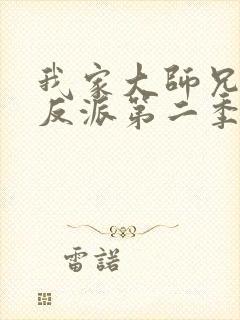 我家大師兄
反派第二季
雷諾